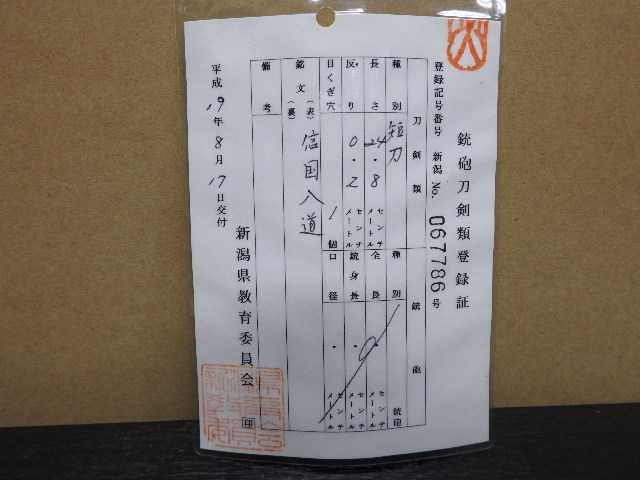 銃砲刀剣類登録証
登録記号番号 新潟 No. 067786 号
刀剣類
銃砲
種別 短刀
種別 銃砲
長さ 24.8 センチメートル
全長 . センチメートル
反り 0.2 センチメートル
銃身長 . センチメートル
目くぎ穴 1個
口径 . センチメートル
銘文 (表) 信国八道
(裏)
備考
平成19年8月17日交付
新潟県教育委員会 印